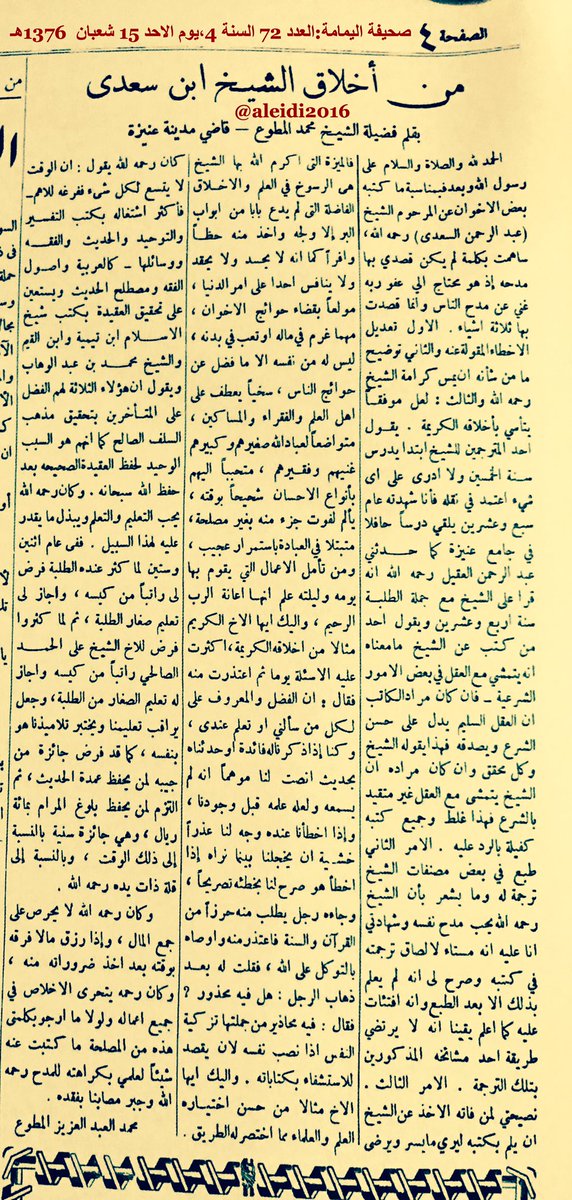 الصفحة ٤
صحيفة اليمامة:العدد 72 السنة 4،يوم الاحد 15 شعبان 1376هـ
من أخلاق الشيخ ابن سعدى
@aleidi2016
بقلم فضيلة الشيخ محمد المطوع – قاضي مدينة عنيزة
الحمد لله والصلاة والسلام على
رسول الله وبعد فبمناسبة ما كتبه
بعض الاخوان عن المرحوم الشيخ
(عبد الرحمن السعدى) رحمه الله،
ساهمت بكلمة لم يكن قصدي بها
مدحه إذ هو محتاج الى عفو ربه
غني عن مدح الناس وانما قصدت
بها ثلاثة اشياء . الاول تعديل
الاخطاء المقولة عنه والثاني توضيح
ما من شأنه ان يمس كرامة الشيخ
رحمه الله والثالث : لعل موفقاً
يتأسي بأخلاقه الكريمة . يقول
احد المترجمين للشيخ ابتدا يدرس
سنة الخمسين ولا ادرى على اى
شيء اعتمد في نقله فأنا شهدته عام
سبع وعشرين يلقي درساً حافلا
في جامع عنيزة كما حدثني
عبد الرحمن العقيل رحمه الله انه
قرا على الشيخ مع جملة الطلبة
سنة اربع وعشرين ويقول احد
من كتب عن الشيخ مامعناه
انه يتمشي مع العقل في بعض الامور
الشرعية – فان كان مراد الكاتب
ان العقل السليم يدل على حسن
الشرع ويصدقه فهذا يقوله الشيخ
وكل محقق وان كان مراده ان
الشيخ يتمشي مع العقل غير متقيد
بالشرع فهذا غلط وجميع كتبه
كفيلة بالرد عليه . الامر الثاني
طبع في بعض مصنفات الشيخ
ترجمة له وما يشعر بأن الشيخ
رحمه الله يحب مدح نفسه وشهادتي
انا عليه انه مستاء لالصاق ترجمته
في كتبه وصرح لى انه لم يعلم
بذلك الا بعد الطبع وانه افتئات
عليه كما اعلم يقينا انه لا يرتضي
طريقة احد مشائخه المذكورين
بتلك الترجمة . الامر الثالث .
نصيحتي لمن فاته الاخذ عن الشيخ
ان يلم بكتبه ليرى مايسر ويرضى
فالميزة التى اكرم الله بها الشيخ
هى الرسوخ في العلم والاخلاق
الفاضلة التى لم يدع بابا من ابواب
البر إلا ولجه واخذ منه حظاً
وافراً كما انه لا يحسد ولا يحقد
ولا ينافس احدا على امر الدنيا ،
مولعاً بقضاء حوائج الاخوان ،
مهما غرم في ماله او تعب في بدنه ،
ليس له من نفسه الا ما فضل عن
حوائج الناس ، سخياً يعطف على
اهل العلم والفقراء والمساكين ،
متواضعاً لعباد الله صغيرهم وكبيرهم
غنيهم وفقيرهم ، متحبباً اليهم
بأنواع الاحسان شحيحاً بوقته ،
يألم لفوت جزء منه بغير مصلحة،
متبتلا في العبادة باستمرار عجيب ،
ومن تأمل الاعمال التي يقوم بها
يومه وليلته علم انها اعانة الرب
الرحيم ، واليك ايها الاخ الكريم
مثالا من اخلاقه الكريمة، اكثرت
عليه الاسئلة يوما ثم اعتذرت منه
فقال : ان الفضل والمعروف على
لكل من سألني او تعلم عندى ،
وكنا إذا ذكر ناله فائدة اوحدثناه
بحديث انصت لنا موهماً انه لم
يسمعه ولعله علمه قبل وجودنا ،
وإذا اخطأنا عنده وجه لنا عذراً
خشية ان يخجلنا بينما نراه إذا
اخطأ هو صرح لنا بخطئه تصريحاً ،
وجاءه رجل يطلب منه حرزاً من
القرآن والسنة فاعتذر منه واوصاه
بالتوكل على الله ، فقلت له بعد
ذهاب الرجل : هل فيه محذور ؟
فقال : فيه محاذير من جملتها تزكية
النفس اذا نصب نفسه لان يقصد
للاستشفاء بكتاباته . واليك ايها
الاخ مثالا من حسن اختياره
العلم والعلماء بما اختصر له الطريق .
كان رحمه لله يقول : ان الوقت
لا يتسع لكل شىء ففرغه للاهم–
فأكثر اشتغاله بكتب التفسير
والتوحيد والحديث والفقه
ووسائلها – كالعربية واصول
الفقه ومصطلح الحديث ويستعين
على تحقيق العقيدة بكتب شيخ
الاسلام ابن تيمية وابن القيم
والشيخ محمد بن عبد الوهاب
ويقول ان هؤلاء الثلاثة لهم الفضل
على المتأخرين بتحقيق مذهب
السلف الصالح كما انهم هو السبب
الوحيد لحفظ العقيدة الصحيحه بعد
حفظ الله سبحانه . وكان رحمه الله
يحب التعليم والتعلم ويبذل ما يقدر
عليه لهذا السبيل . ففى عام اثنين
وستين لما كثر عنده الطلبة فرض
لى راتباً من كيسه ، واجاز لى
تعليم صغار الطلبة ، ثم لما كثروا
فرض للاخ الشيخ على الحمد
الصالحي راتباً من كيسه واجاز
له تعليم الصغار من الطلبة، وجعل
يراقب تعليمنا ويختبر تلاميذنا هو
بنفسه ، كما قد فرض جائزة من
جيبه لمن يحفظ عمدة الحديث ، ثم
التزم لمن يحفظ بلوغ المرام بمائة
ريال ، وهي جائزة سنية بالنسبة
إلى ذلك الوقت ، وبالنسبة إلى
قلة ذات يده رحمه الله .
وكان رحمه الله لا يحرص على
جمع المال ، وإذا رزق مالا فرقه
بوقته بعد اخذ ضروراته منه ،
وكان رحمه يتحرى الاخلاص في
جميع اعماله ولولا ما ارجو بكلمتى
هذه من المصلحة ما كتبت عنه
شيئاً لعلمي بكراهته للمدح رحمه
الله وجبر مصابنا بفقده .
محمد العبد العزيز المطوع